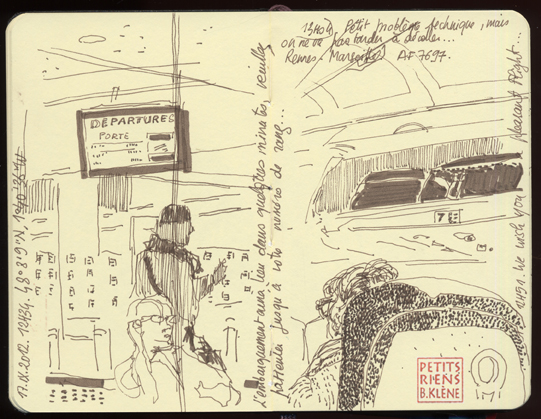 17.IX.2012. 12H34. 48°8'9"N, 1°40'34"W
DEPARTURES
PORTE
L'embarquement aura lieu dans quelques minutes, veuillez
patienter jusqu'à votre numéro de rang...
13H04 Petit problème technique, mais
on ne va pas tarder à décoller...
Rennes-Marseille AF 7697.
7E
12H51. We wish you a pleasant flight...
PETITS
RIENS
B.KLÈNE